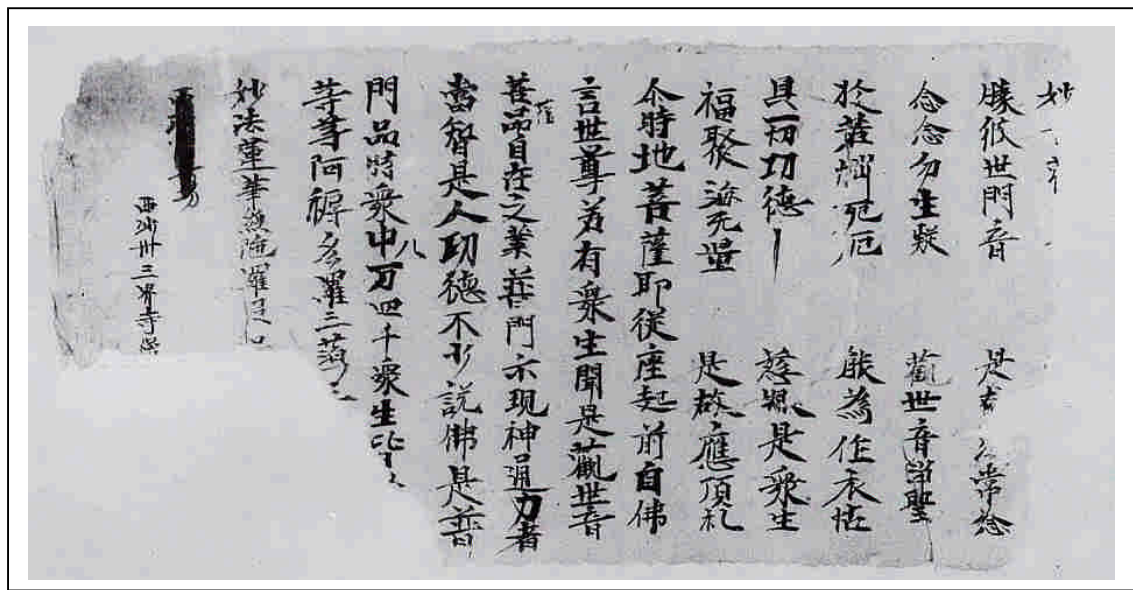 妙
勝彼世門音 是 常念
念念勿生疑 觀世音淨聖
於苦惱死厄 能為作衣怙
具一切功德 慈眼是衆生
福聚海无量 是故應頂礼
尒時地菩薩即從座起前自佛
言世尊若有衆生聞是觀世音
菩薩品自在之業莊門示現神通力者
當智是人功德不少說佛是普
門品時衆中八万四千衆生皆
等等阿耨多羅三藐
妙法蓮華經陁羅尼
西
西沙州三界寺學